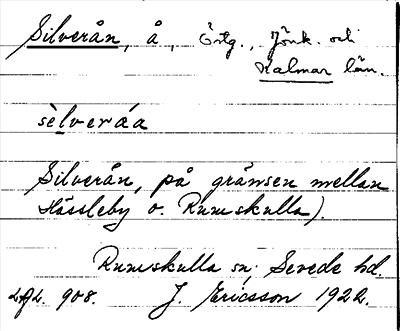 Silverån, å, Östg., Jönk. och
Kalmar län.
sèlveráa
Silverån, på gränsen mellan
Hässleby o. Rumskulla).
Rumskulla sn, Sevede hd.
908. J. Ericsson 1922.